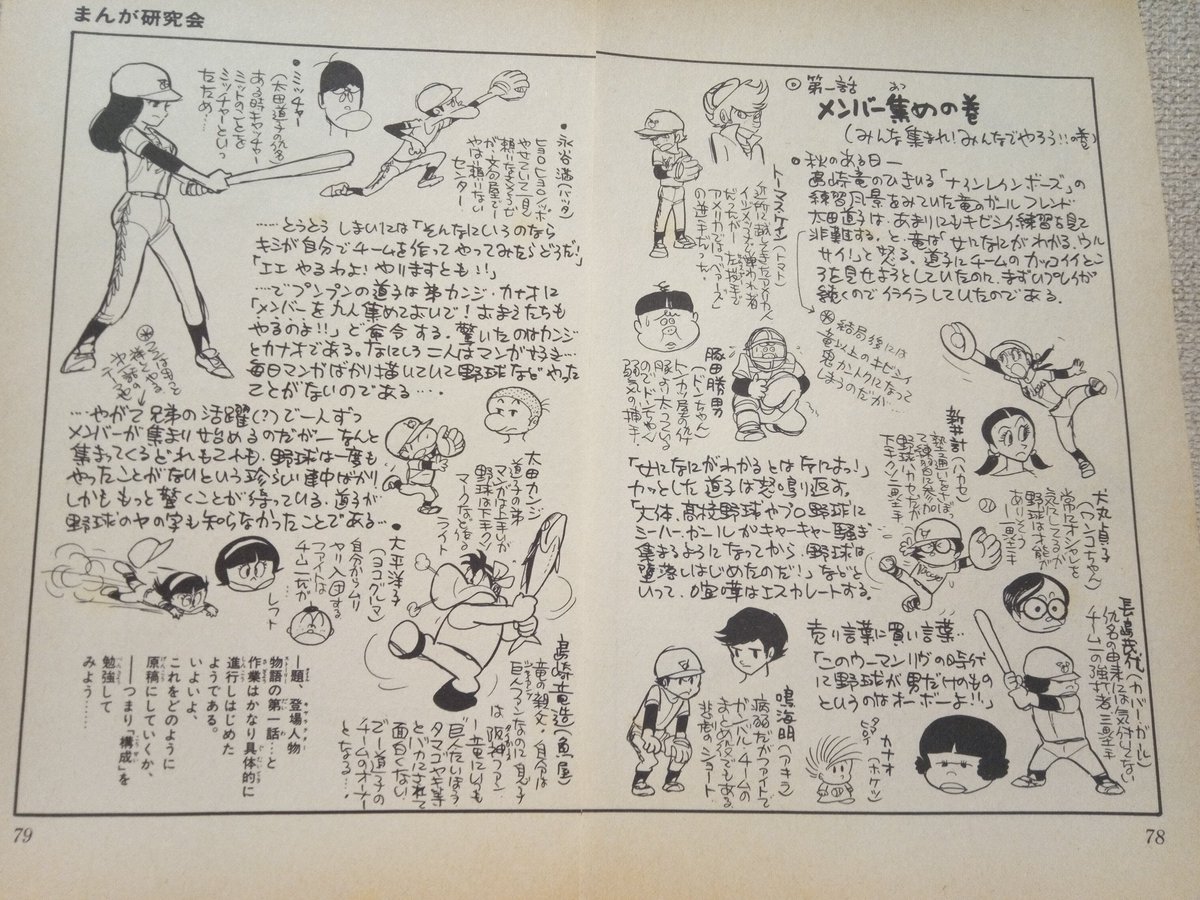 まんが研究会
◎第一話
メンバー集めの巻
(みんな集まれ!みんなでやろう!!の巻)
●秋のある日―
島崎竜のひきいる「ナインレインボーズ」の
練習風景をみていた竜のガールフレンド
太田道子は、あまりにもキビシイ練習を見て
非難する。と、竜は「女になにがわかる、ウル
サイ!」と怒る。道子にチームのカッコイイとこ
ろを見せようとしていたのに、まずいプレイが
続くのでイライラしていたのである。
※結局後には
竜以上のキビシイ
鬼カントクになって
しまうのだが…
トーマス・ケイン(トマト)
近所に越してきたアメリカ人
だったが―左投手で
アメリカでは「ベアーズ」
の逆手だった。
豚田勝男
(ドンちゃん)
トンカツ屋の伜
豚より太っている
のでドンちゃん
弱気の捕手。
新井計(ハカセ)
下手クソ二塁手
犬丸貞子
(ワンコちゃん)
常にオシャレを
気にしてるが
野球は才能が
ありそう
一塁手
「女になにがわかるとはなによっ!」
カッとした道子は怒鳴り返す。
「大体、高校野球やプロ野球に
ミーハー、ガールがキャーキャー騒ぎ
集まるようになってから、野球は
堕落しはじめたのだ!」などと
いって、喧嘩はエスカレートする。
売り言葉に買い言葉…
「このウーマンリヴの時代
に野球が男だけのもの
というのはオーボーよ!!」
長島茂代(カバーガール)
仇名の由来には気付いてない
チーム一の強打者 三塁手
鳴海明(アキラ)
病弱だがファイトで
ガンバル・チームの
まとめ役でもある
悲劇のショート
カナオ
(ホケツ)
78
●永谷満(バッタ)
ヒョロヒョロノッポ
やせていて一見
頼りなさそうだ
が文句屋で―
やはり頼りない
センター
●ミッチャー
(太田道子の仇名
ある時キャッチャー
ミットのことを
ミッチャーといっ
たため…
…とうとう しまいには「そんなにいうのなら
キミが自分でチームを作ってやってみたらどうだ!」
「エエ やるわよ!やりますとも!!」
…でプンプンの道子は弟カンジ・カナオに
「メンバーを九人集めてよいで!おまえたちも
やるのよ!!」と命令する。驚いたのはカンジ
とカナオである。なにしろ二人はマンガずき…
毎日マンガばかり描いていて野球などやった
ことがないのである…。
…やがて兄弟の活躍(?)で一人ずつ
メンバーが集まり始めるのだが―なんと
集まってくるどれもこれも、野球は一度も
やったことがないという珍らしい連中ばかり
しかももっと驚くことが待っている。道子が
野球のヤの字も知らなかったことである…
太田カンジ
道子の弟
マンガは上手いが
野球は下手クソ
マークなどを作る
ライト
●大平洋子
(ヨコグルマ)
自分からムリ
ヤリ入団する
ファイトは
チーム一だが
レフト
島崎竜造(魚屋)
竜の親父・自分は
巨人ファンなのに息子
は阪神ファン
―竜にいつも
巨人だいほう
タマゴヤキ等
とバカにされて
面白くない
で―道子の
チームのオーナー
となる…。
―題、登場人物
物語の第一話…と
作業はかなり具体的に
進行しはじめた
ようである。
いよいよ、
これをどのように
原稿にしていくか、
―つまり「構成」を
勉強して
みよう……
79